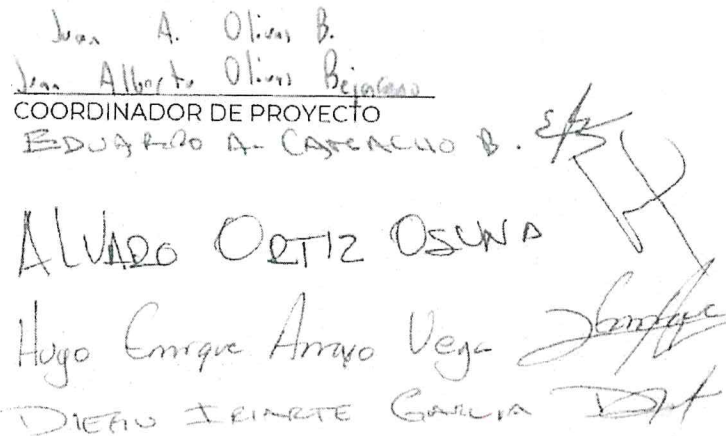 Juan A. Olivas B.
Juan Alberto Olivas Bejarano
COORDINADOR DE PROYECTO
EDUARDO A. CAMACHO B.
ALVARO ORTIZ OSUNA
Hugo Enrique Arroyo Vega
DIEGO IRIARTE GARCIA